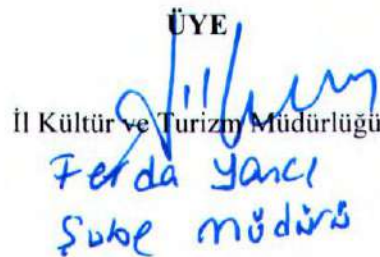 ÜYE
İl Kültür ve Turizm Müdürlüğü
Ferda Yancı
Şube Müdürü